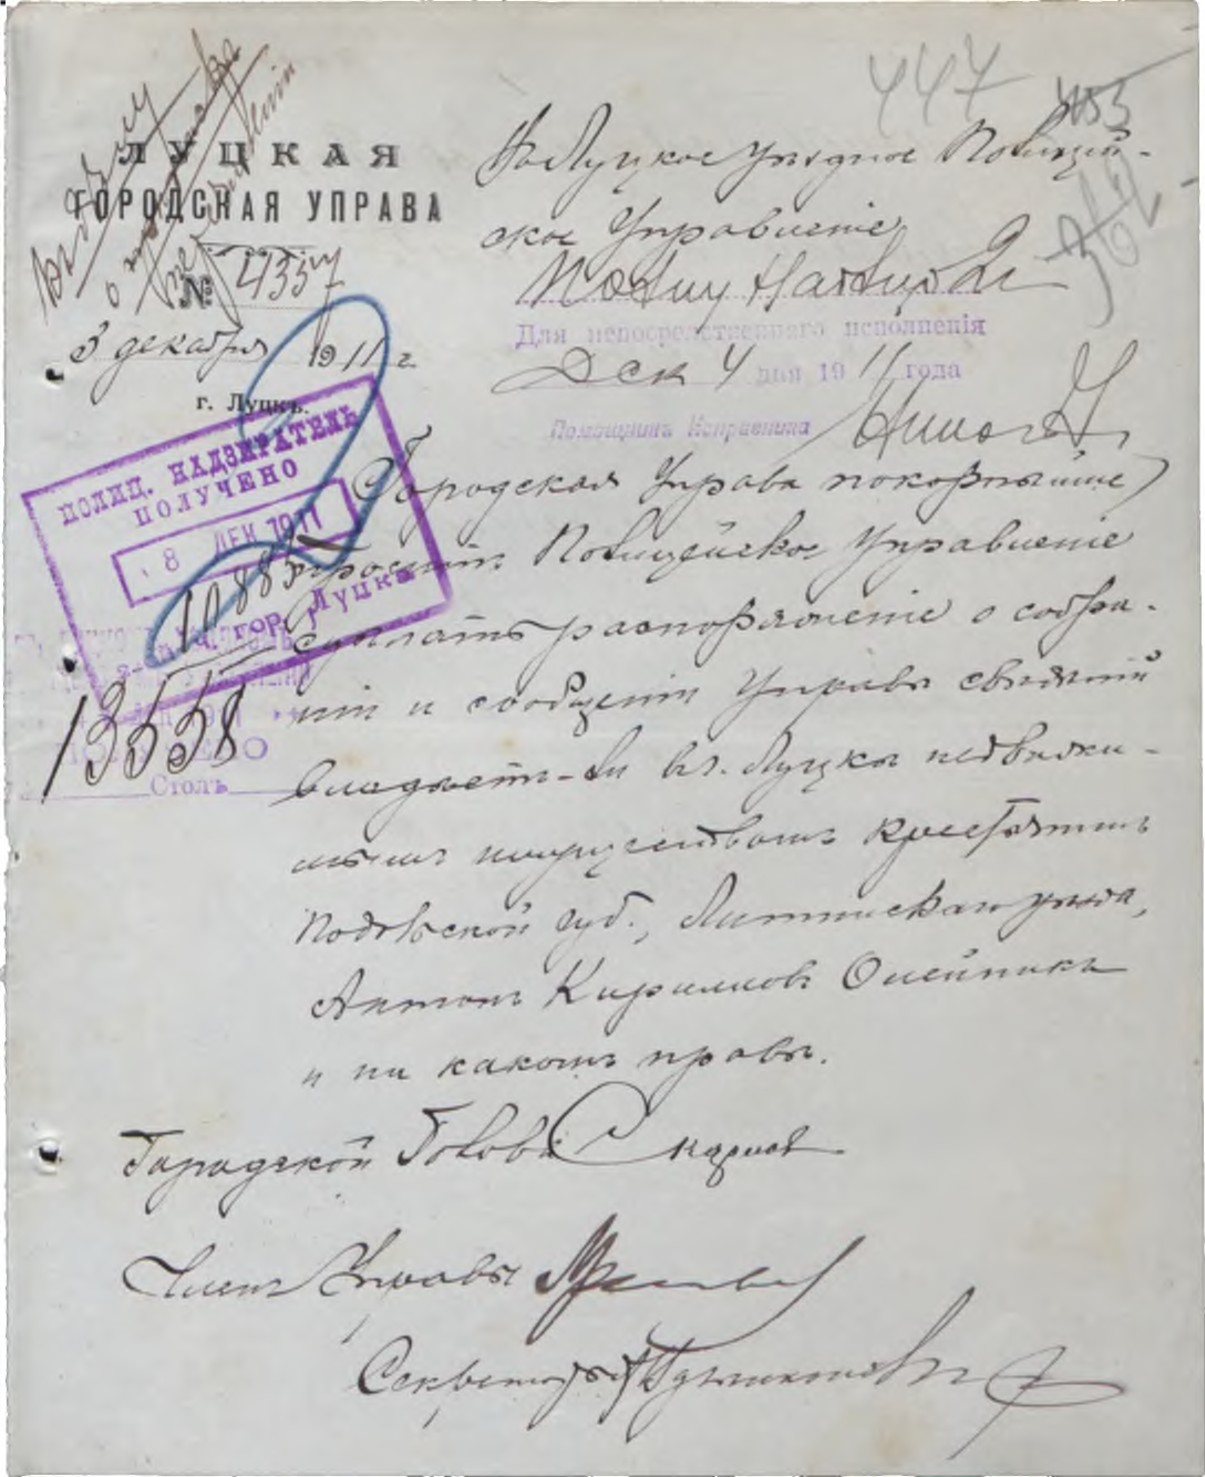 447
453
ЛУЦКАЯ
ГОРОДСКАЯ УПРАВА
№ 4357
3 декабря 1911 г.
г. Луцкъ.
Въ Луцкое Уѣздное Полицей-
ское Управленіе
Для непосредственнаго исполненія
Дек 4 дня 1911 года
Помощникъ Исправника
ПОЛИЦ. НАДЗИРАТЕЛЬ
ПОЛУЧЕНО
8 ДЕК 1911
гор. Луцка
10885
13558
Столъ
Городская Управа покорнѣйше
проситъ Полицейское Управленіе
сдѣлать распоряженіе о собра-
ніи и сообщеніи Управѣ свѣдѣній
владѣетъ-ли въ г. Луцкѣ недвижи-
мымъ имуществомъ крестьянинъ
Подольской губ., Литинскаго уѣзда,
Антонъ Кирилловъ Олейникъ
и на какомъ правѣ.
Городской Голова
Членъ Управы
Секретарь